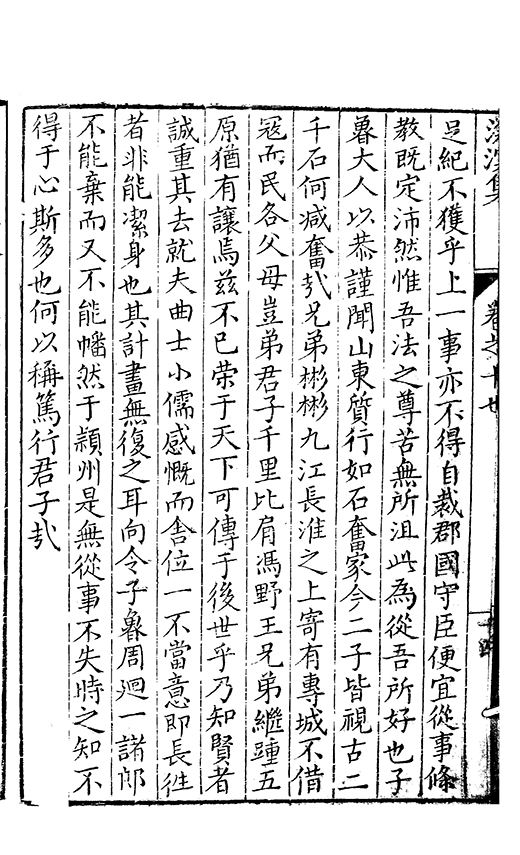 足紀不獲乎上一事亦不得自裁郡國守臣便宜從事條
教既定沛然惟吾法之尊苦無所沮此為從吾所好也子
魯大人以恭謹聞山東質行如石奮家今二子皆視古二
千石何减奮㦲兄弟彬彬九江長淮之上寄有專城不借
冦而民各父母豈弟君子千里比肩馮野王兄弟繼踵五
原猶有讓焉兹不已荣于天下可傳于後世乎乃知賢者
誠重其去就夫曲士小儒感慨而舍位一不當意即長徃
者非能潔身也其計畫無復之耳向令子魯周迴一諸郎
不能棄而又不能幡然于潁州是無從事不失時之知不
得于心斯多也何以稱篤行君子㦲
滄溟集
卷之十七